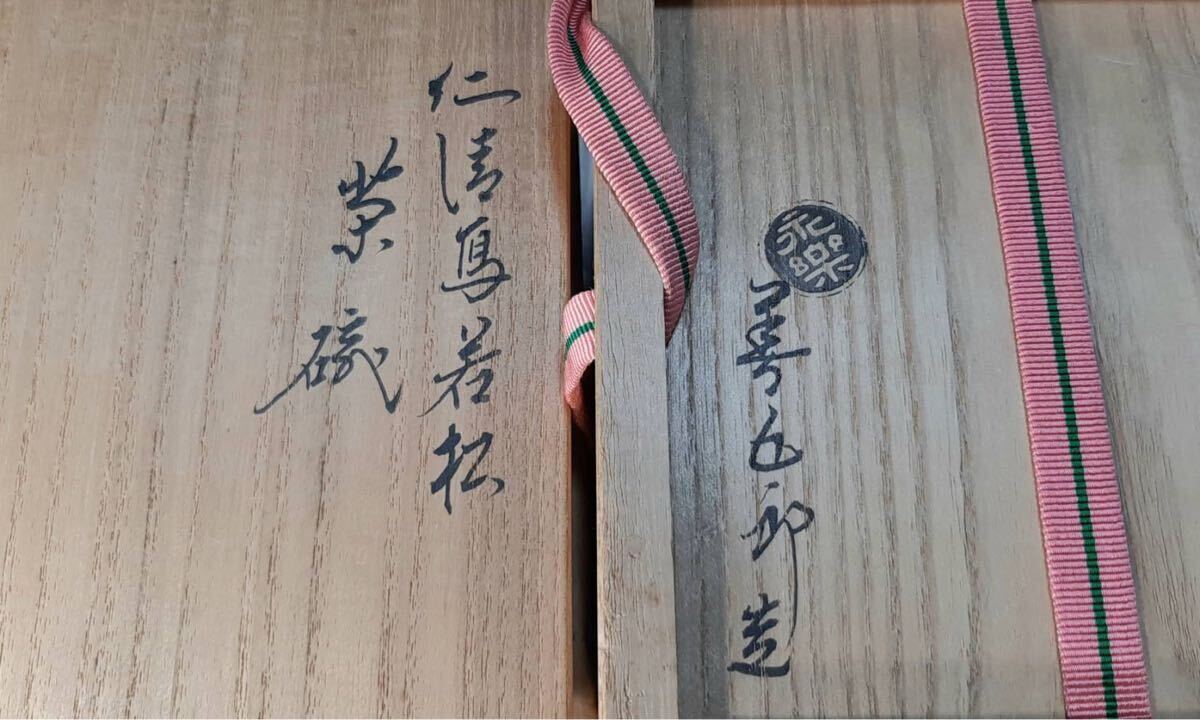 仁清写若松
茶碗
永樂
善五郎造